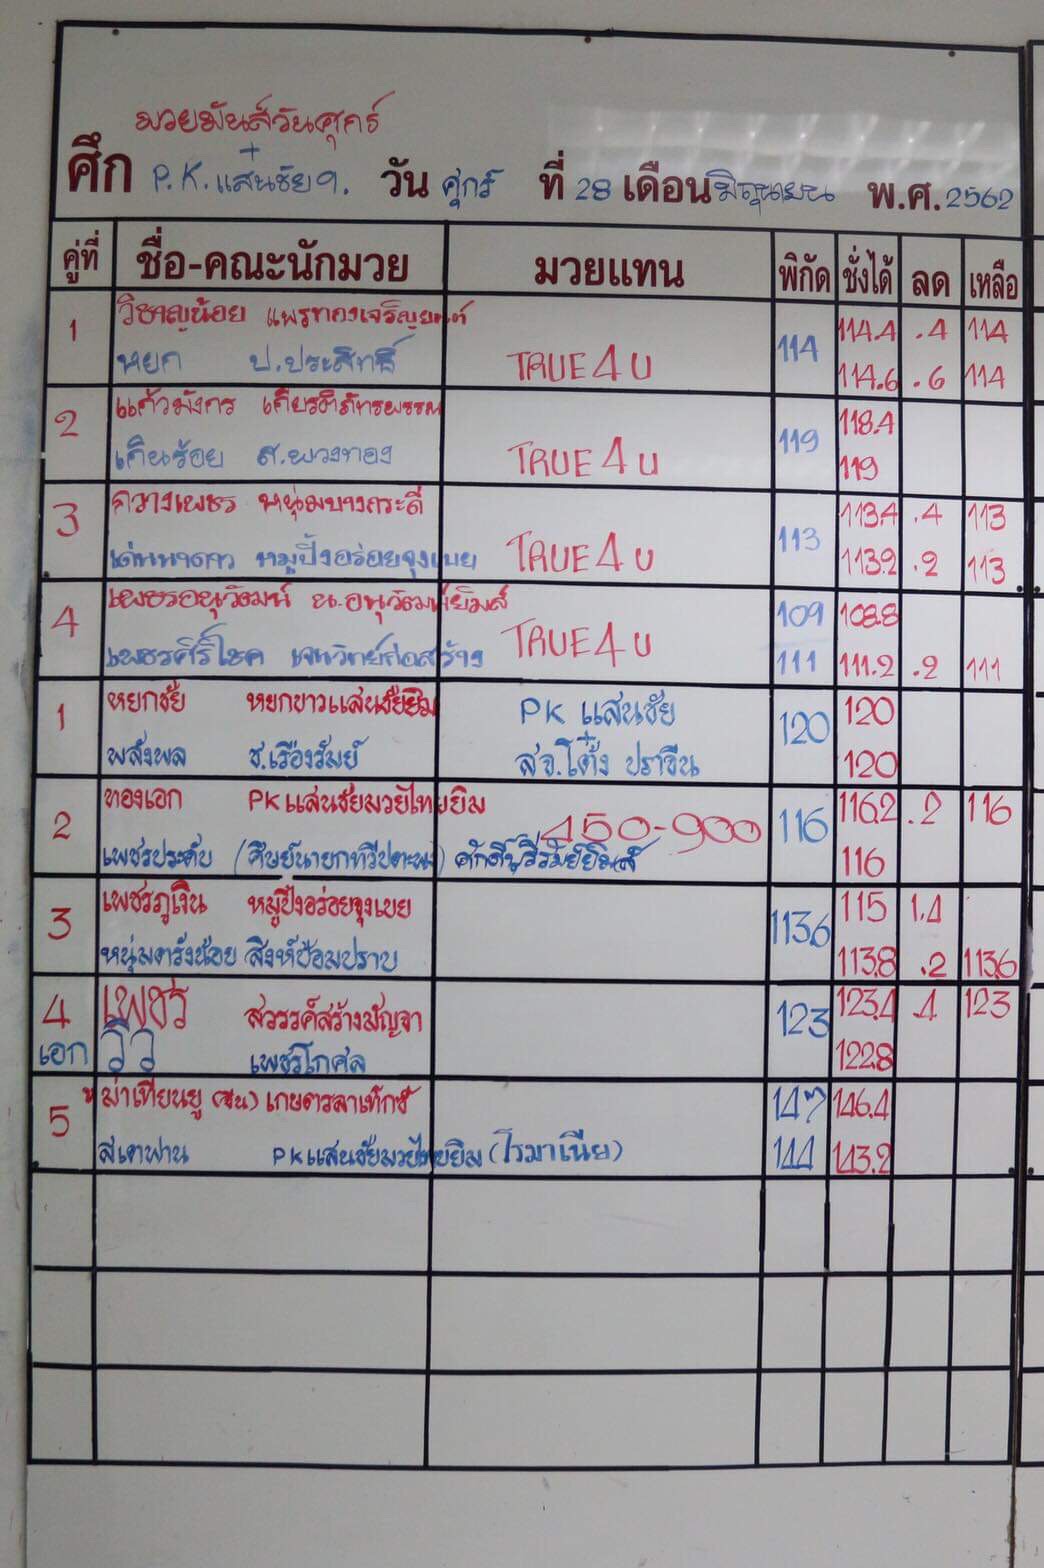 มวยมันส์วันศุกร์
+
ศึก P.K.แสนชัยฯ. วัน ศุกร์ ที่ 28 เดือน มิถุนายน พ.ศ. 2562
คู่ที่ ชื่อ-คณะนักมวย มวยแทน พิกัด ชั่งได้ ลด เหลือ
1 วิชาญน้อย แพรทองเจริญยนต์ 114.4 .4 114
หยก ป.ประสิทธิ์ TRUE4U 114 114.6 .6 114
2 แก้วมังกร เกียรติภัทรพรรณ 118.4
เดินร้อย ส.พวงทอง TRUE4U 119 119
3 กวางเพชร หนุ่มบางกระดี่ 113.4 .4 113
เด่นนาคา หมูปิ้งอร่อยจุงเบย TRUE4U 113 113.2 .2 113
4 เพชรอนุวัฒน์ น.อนุวัฒน์ยิมส์ 109 108.8
เพชรศิริโชค เจนวิทย์ก่อสร้าง TRUE4U 111 111.2 .2 111
1 หยกชัย หยกขาวแสนชัยยิม PK แสนชัย 120 120
+
พลังพล ช.เรืองรัมย์ สจ.โต้ง ปราจีน 120
2 ทองเอก PKแสนชัยมวยไทยยิม 450-900 116 116.2 .2 116
เพชรประดับ (ศิษย์นายกทวีปตะพง) ศักดิ์บุรีรัมย์ยิมส์ 116
3 เพชรภูเงิน หมูปิ้งอร่อยจุงเบย 113.6 115 1.4
หนุ่มตรังน้อย สิงห์ป้อมปราบ 113.8 .2 113.6
4 เพชร สวรรค์สร้างปัญจา 123 123.4 .4 123
เอก วิว เพชรโกศล 122.8
5 ม่าเทียนยู (จีน) เกษตรลาเท็กซ์ 147 146.4
สเตฟาน PKแสนชัยมวยไทยยิม (โรมาเนีย) 144 143.2